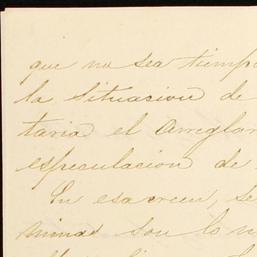 que no sea tiempo
la situacion de
taria el arreglar
especulacion de
En esa creen, se
minas son lo